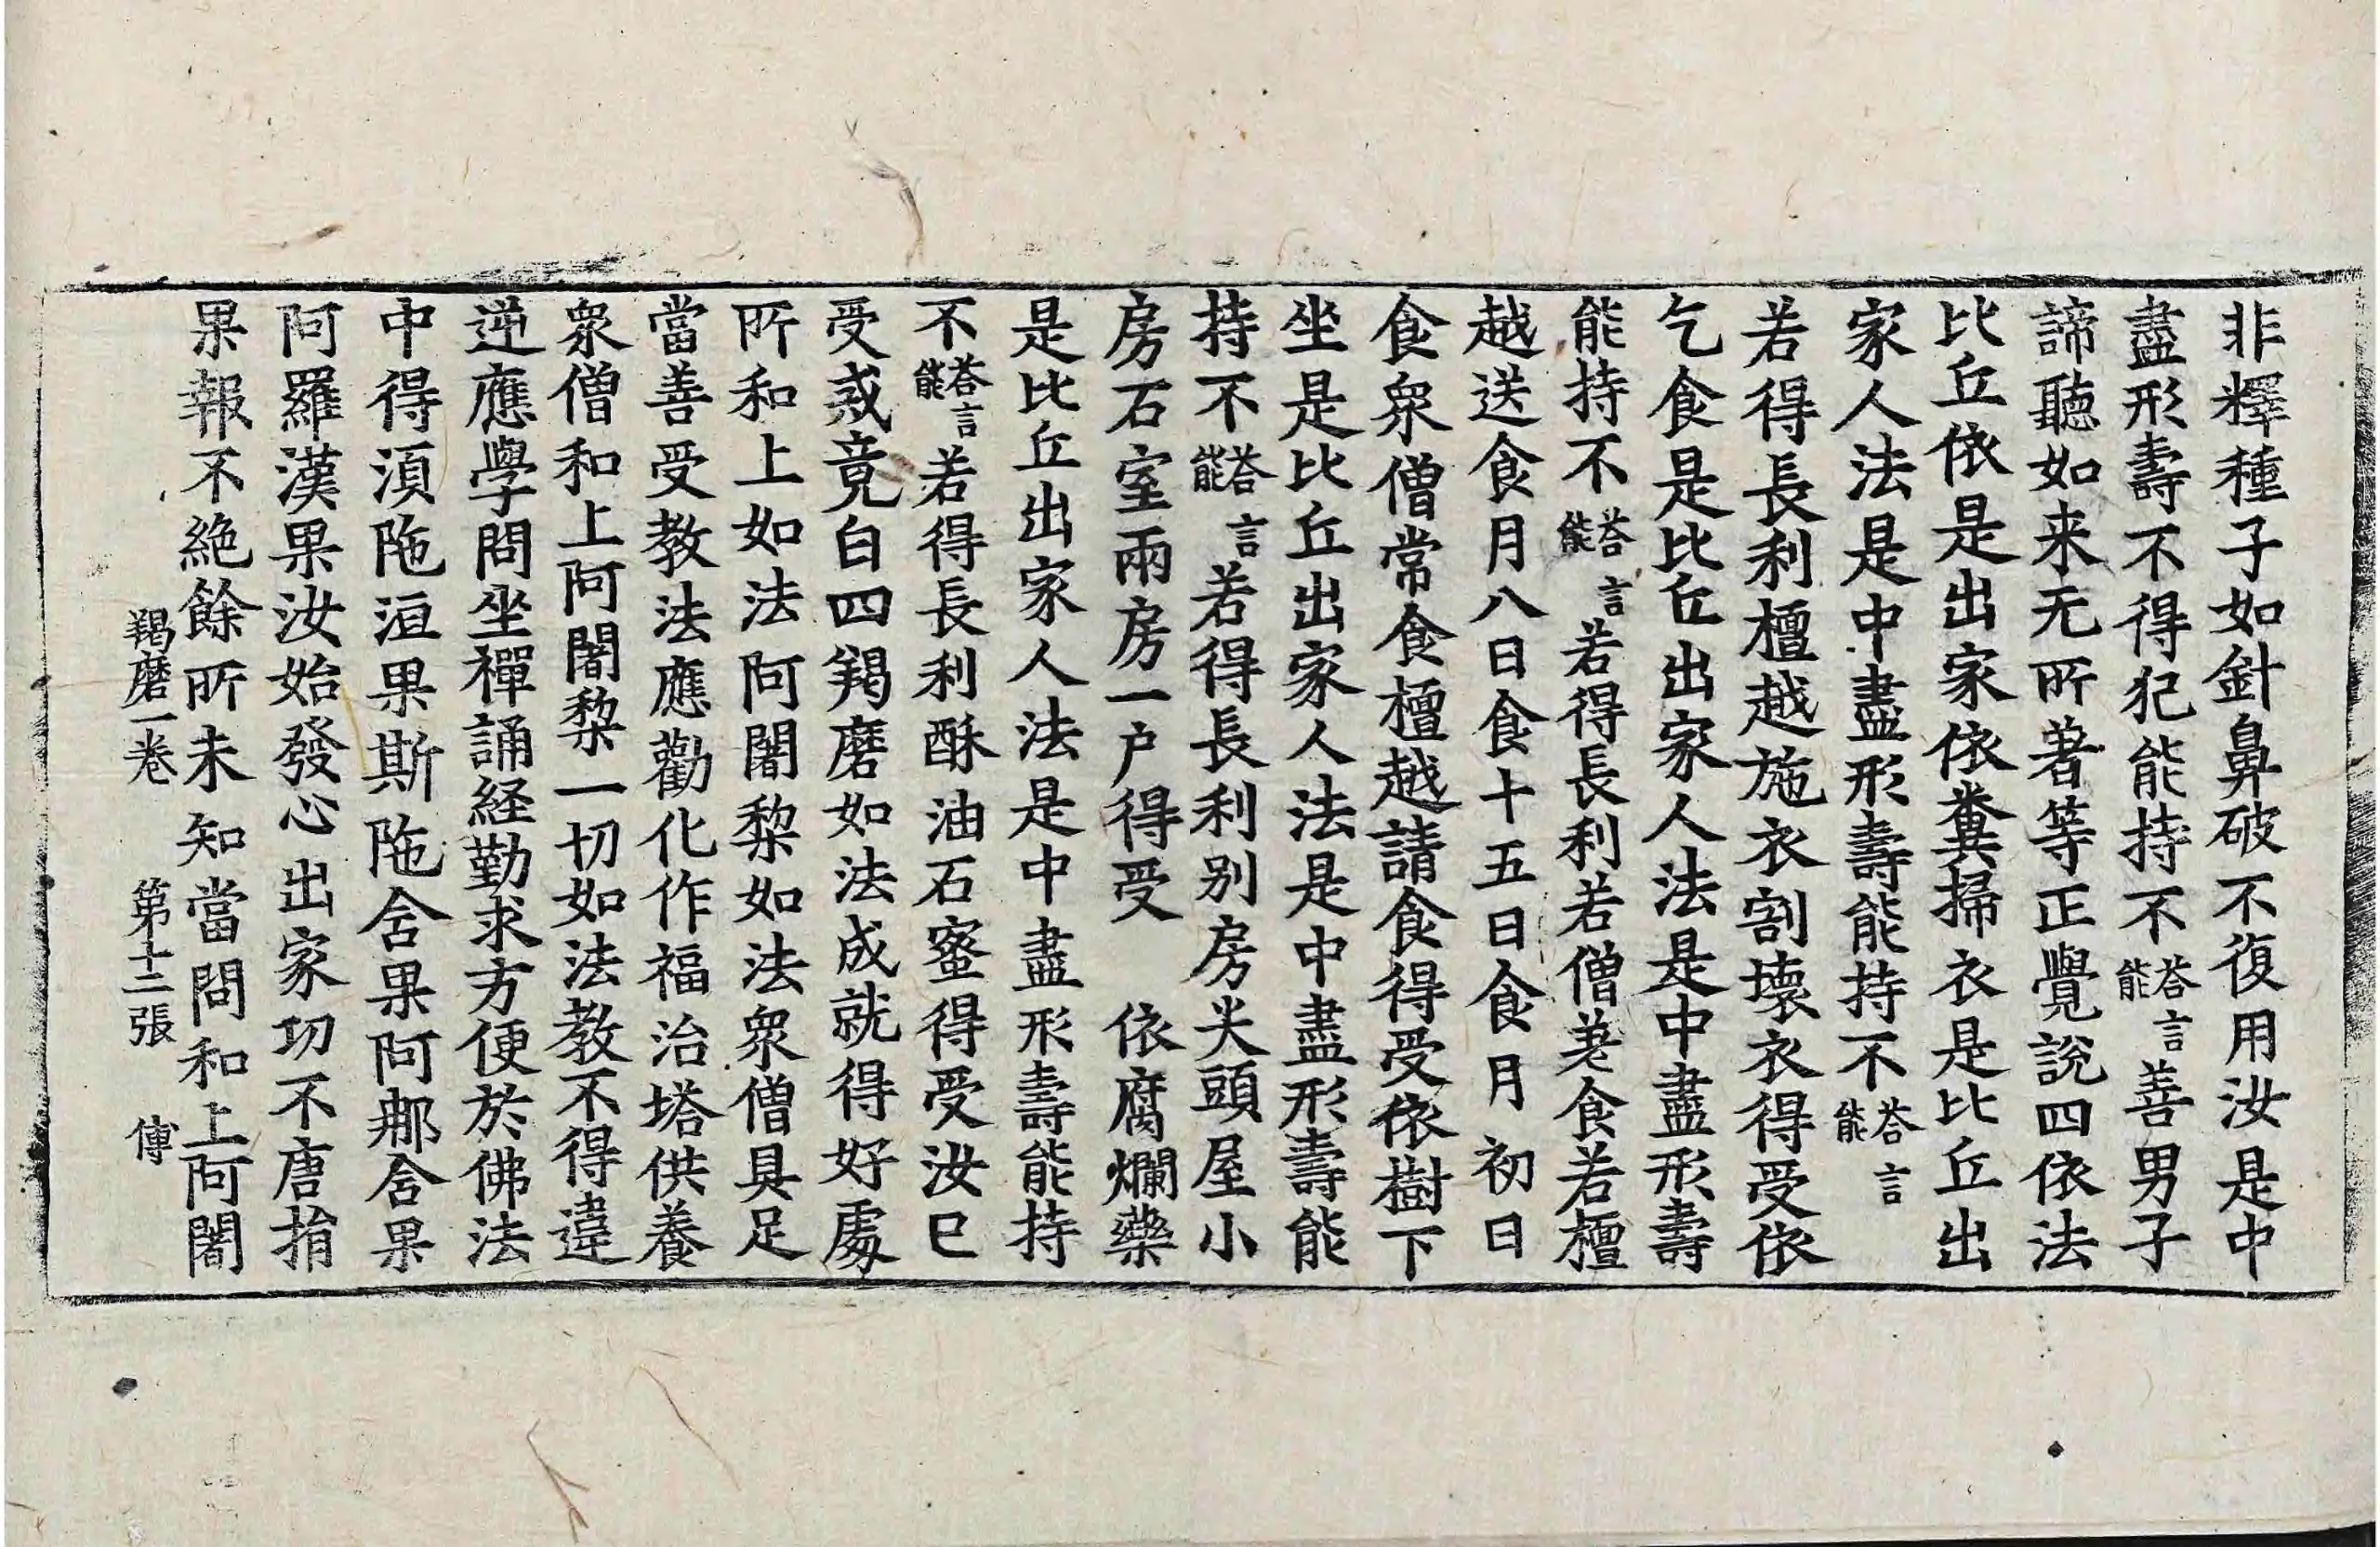 非釋種子如針鼻破不復用汝是中
盡形壽不得犯能持不答言能善男子
諦聽如来无所著等正覺說四依法
比丘依是出家依糞掃衣是比丘出
家人法是中盡形壽能持不答言能
若得長利檀越施衣割壞衣得受依
乞食是比丘出家人法是中盡形壽
能持不答言能若得長利若僧差食若檀
越送食月八日食十五日食月初日
食衆僧常食檀越請食得受依樹下
坐是比丘出家人法是中盡形壽能
持不答言能若得長利別房尖頭屋小
房石室兩房一户得受 依腐爛藥
是比丘出家人法是中盡形壽能持
不答言能若得長利酥油石蜜得受汝已
受戒竟白四羯磨如法成就得好處
所和上如法阿闍梨如法衆僧具足
當善受教法應勸化作福治塔供養
衆僧和上阿闍梨一切如法教不得違
逆應學問坐禪誦経勤求方便於佛法
中得須陁洹果斯陁含果阿那含果
阿羅漢果汝始發心出家功不唐捐
果報不絶餘所未知當問和上阿闍
羯磨一卷 第十二張 傅